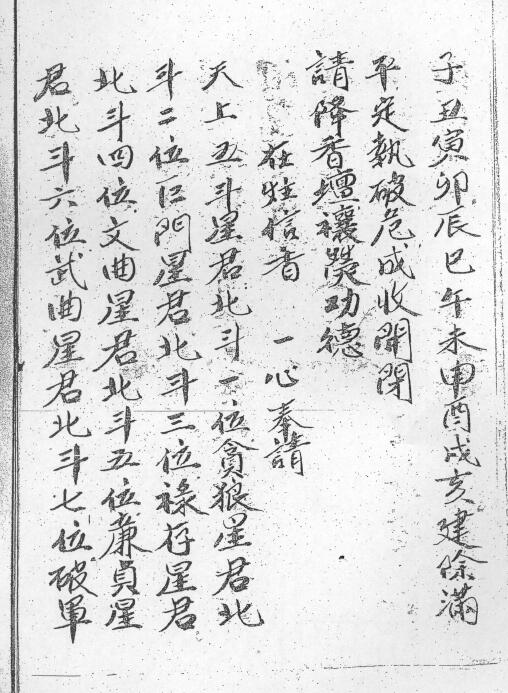 子丑寅卯辰巳午未申酉戌亥建除滿
平定執破危成收開閉
請降香壇禳熒功德
在壇信香　一心奉請
天上五斗星君北斗一位貪狼星君北
斗二位巨門星君北斗三位祿存星君
北斗四位文曲星君北斗五位廉貞星
君北斗六位武曲星君北斗七位破軍